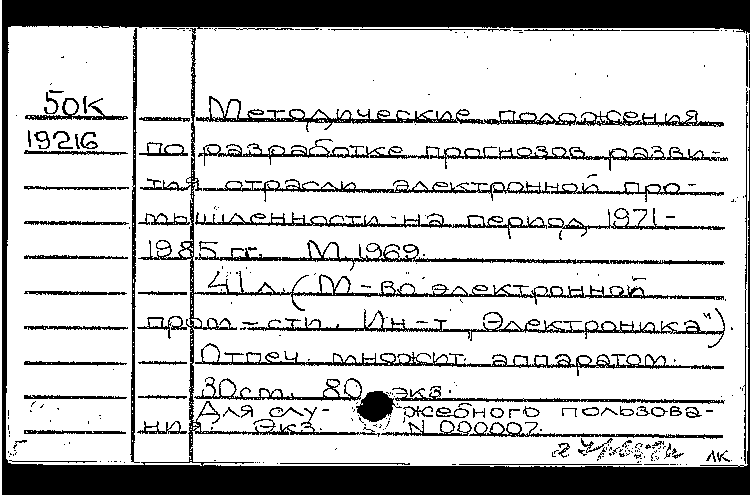 50К
19216
Методические положения
по разработке прогнозов разви-
тия отрасли электронной про-
мышленности на период 1971-
1985 гг. М, 1969.
41 л. (М-во электронной
пром-сти. Ин-т „Электроника").
Отпеч. множит. аппаратом.
30 см. 80 экз.
Для слу- жебного пользова-
ния. Экз. N 000007.
лк